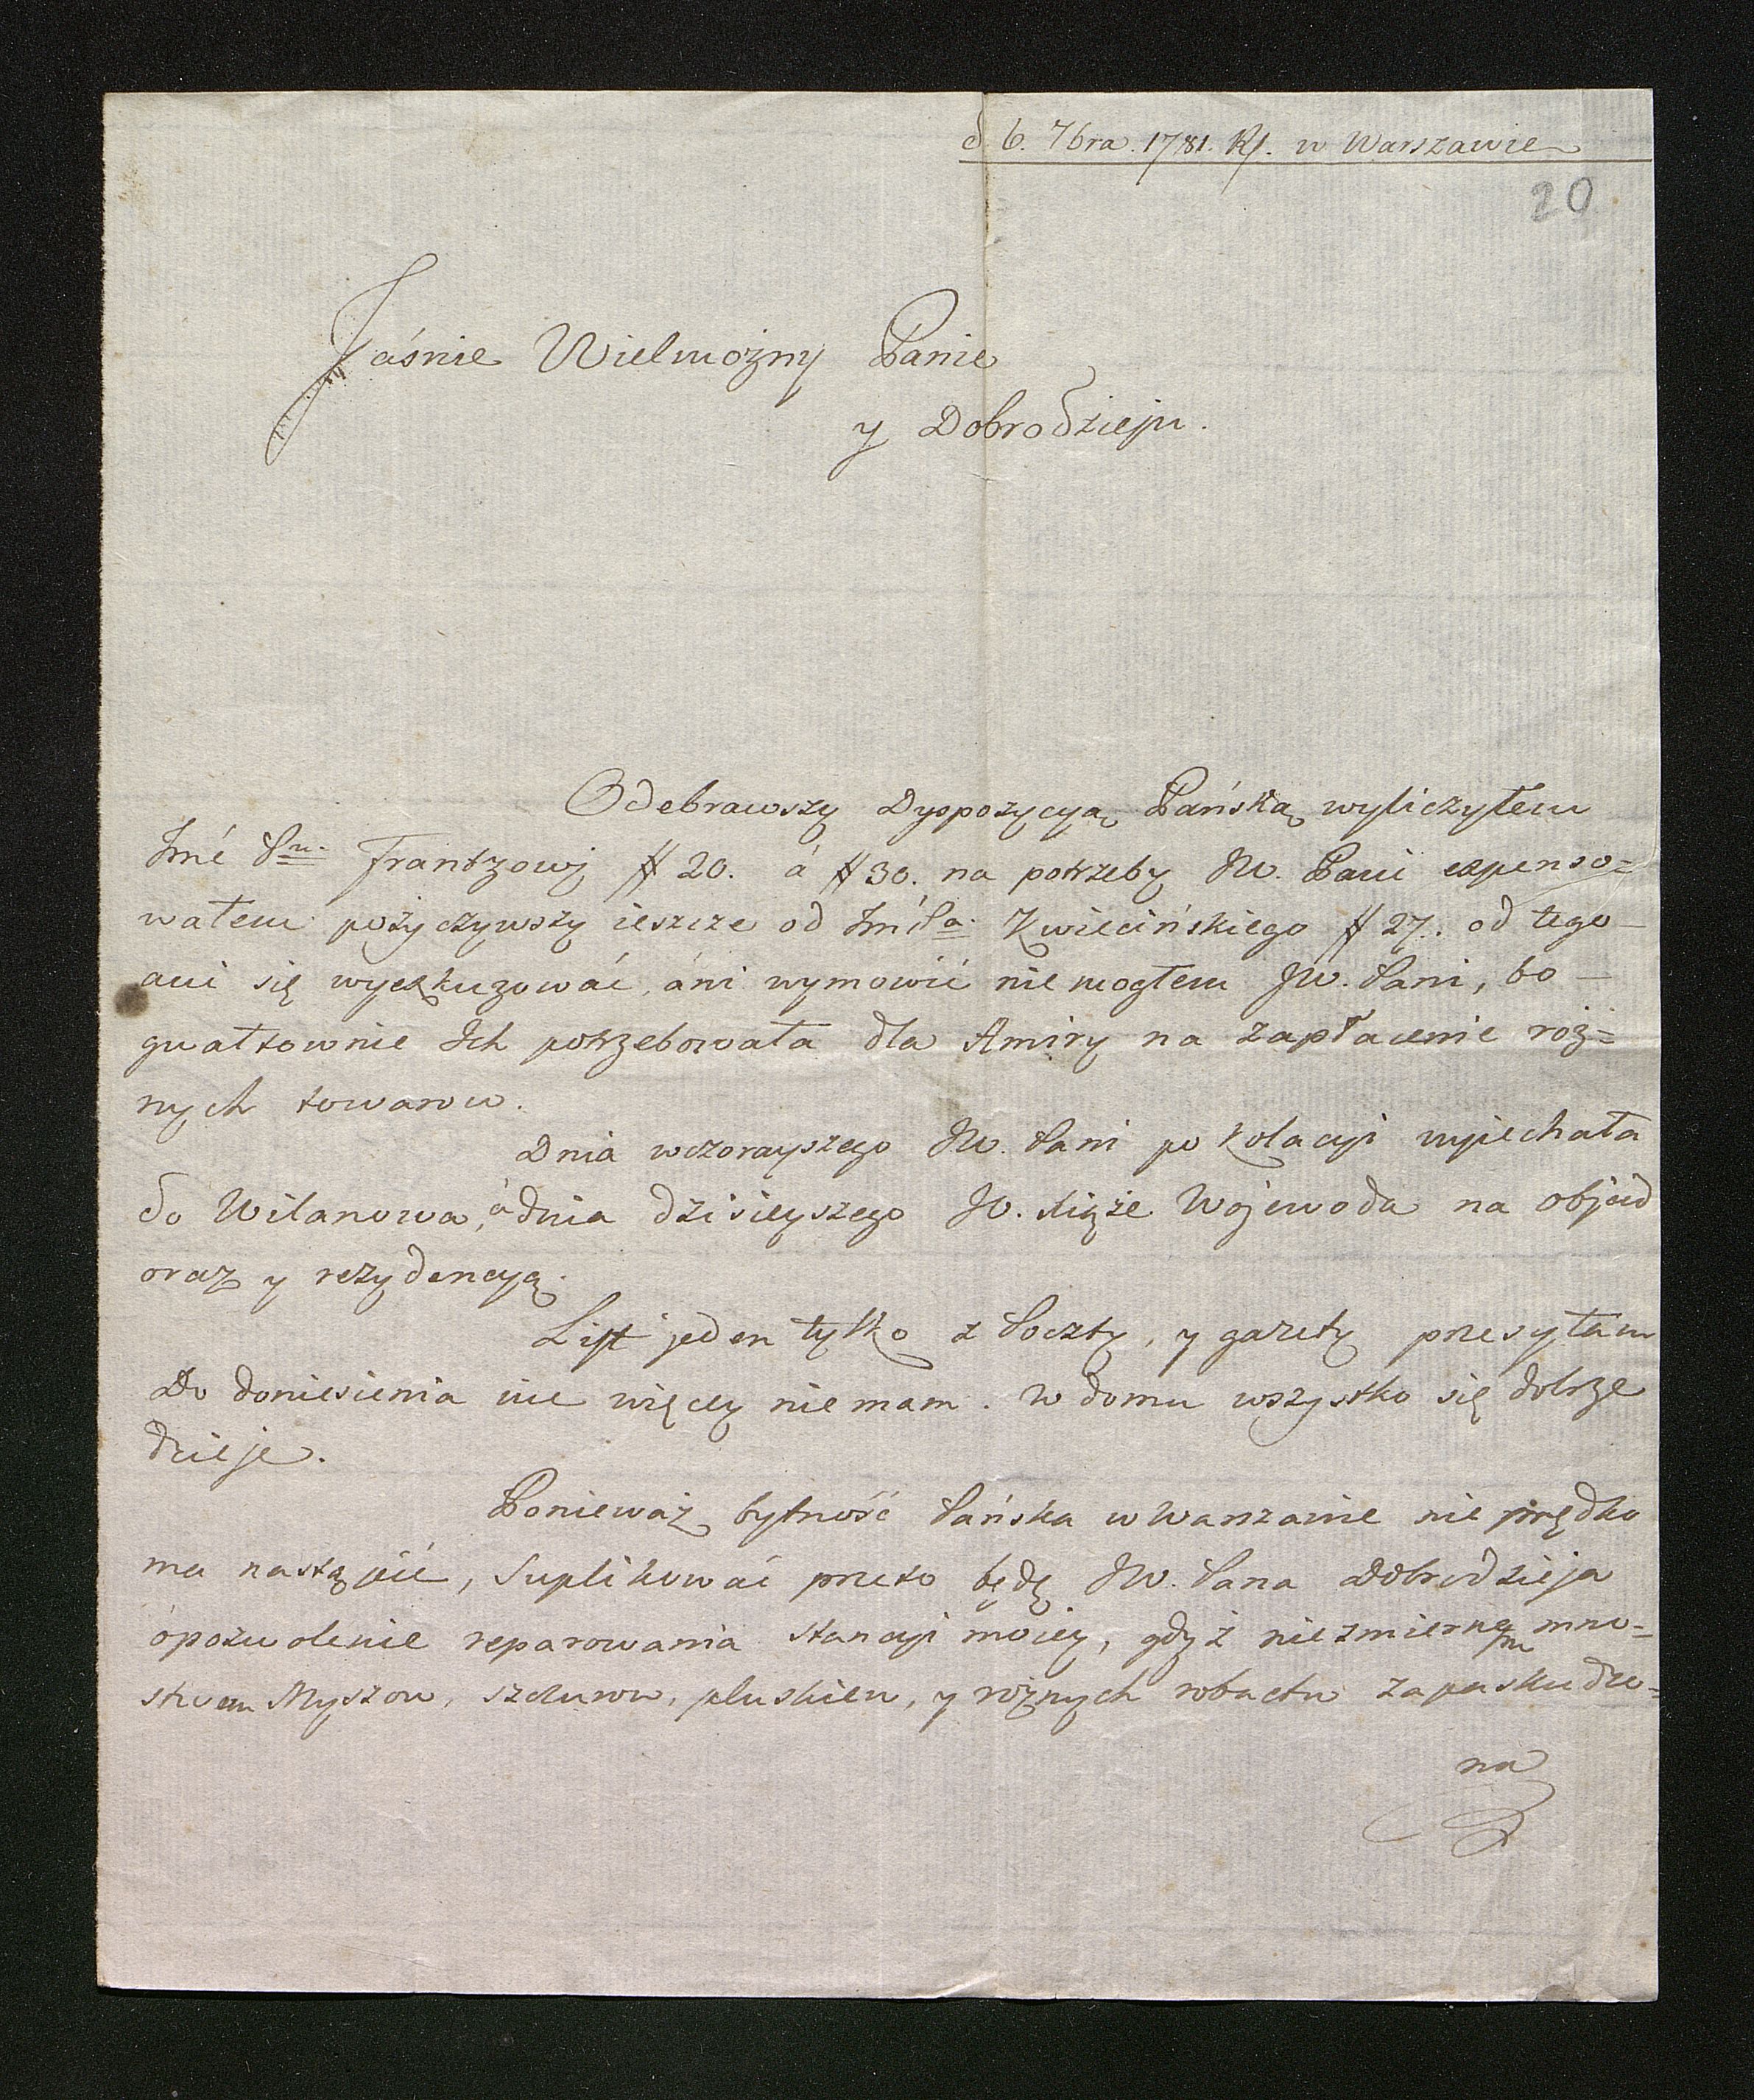 d. 6. 7bra. 1781. Rf. w Warszawie
20
Jaśnie Wielmożny Panie
y Dobrodzieju.
Odebrawszy Dyspozycyą Pańską wyliczyłem
Jmć Pnu Frantzowj # 20. á # 30. na potrzeby JW. Pani expenso=
wałem pożyczywszy ieszcze od JmćPa Kwiecińskiego # 27. od tego
ani się wyexkuzować, áni wymowić nie mogłem JW. Pani, bo
gwałtownie Ich potrzebowała dla Amiry na zapłacenie róż=
nych towarow.
Dnia wczorayszego JW. Pani po kolacyi wyiechała
do Wilanowa, á dnia dzisieyszego JO. Xiąże Wojewoda na objad
oraz y rezydencyą.
List jeden tylko z Poczty, y gazety przesyłam
Do doniesienia nic więcey nie mam. w domu wszystko się dobrze
dzieje.
Ponieważ bytność Pańska w Warszawie nie prędko
ma nastąpić, Suplikować przeto będę JW. Pana Dobrodzieja
ópozwolenie reparowania stancyi moiey, gdyż niezmiernem mno=
stwem Myszow, szczurow, pluskiew, y rożnych robactw zapaskudzo=
na